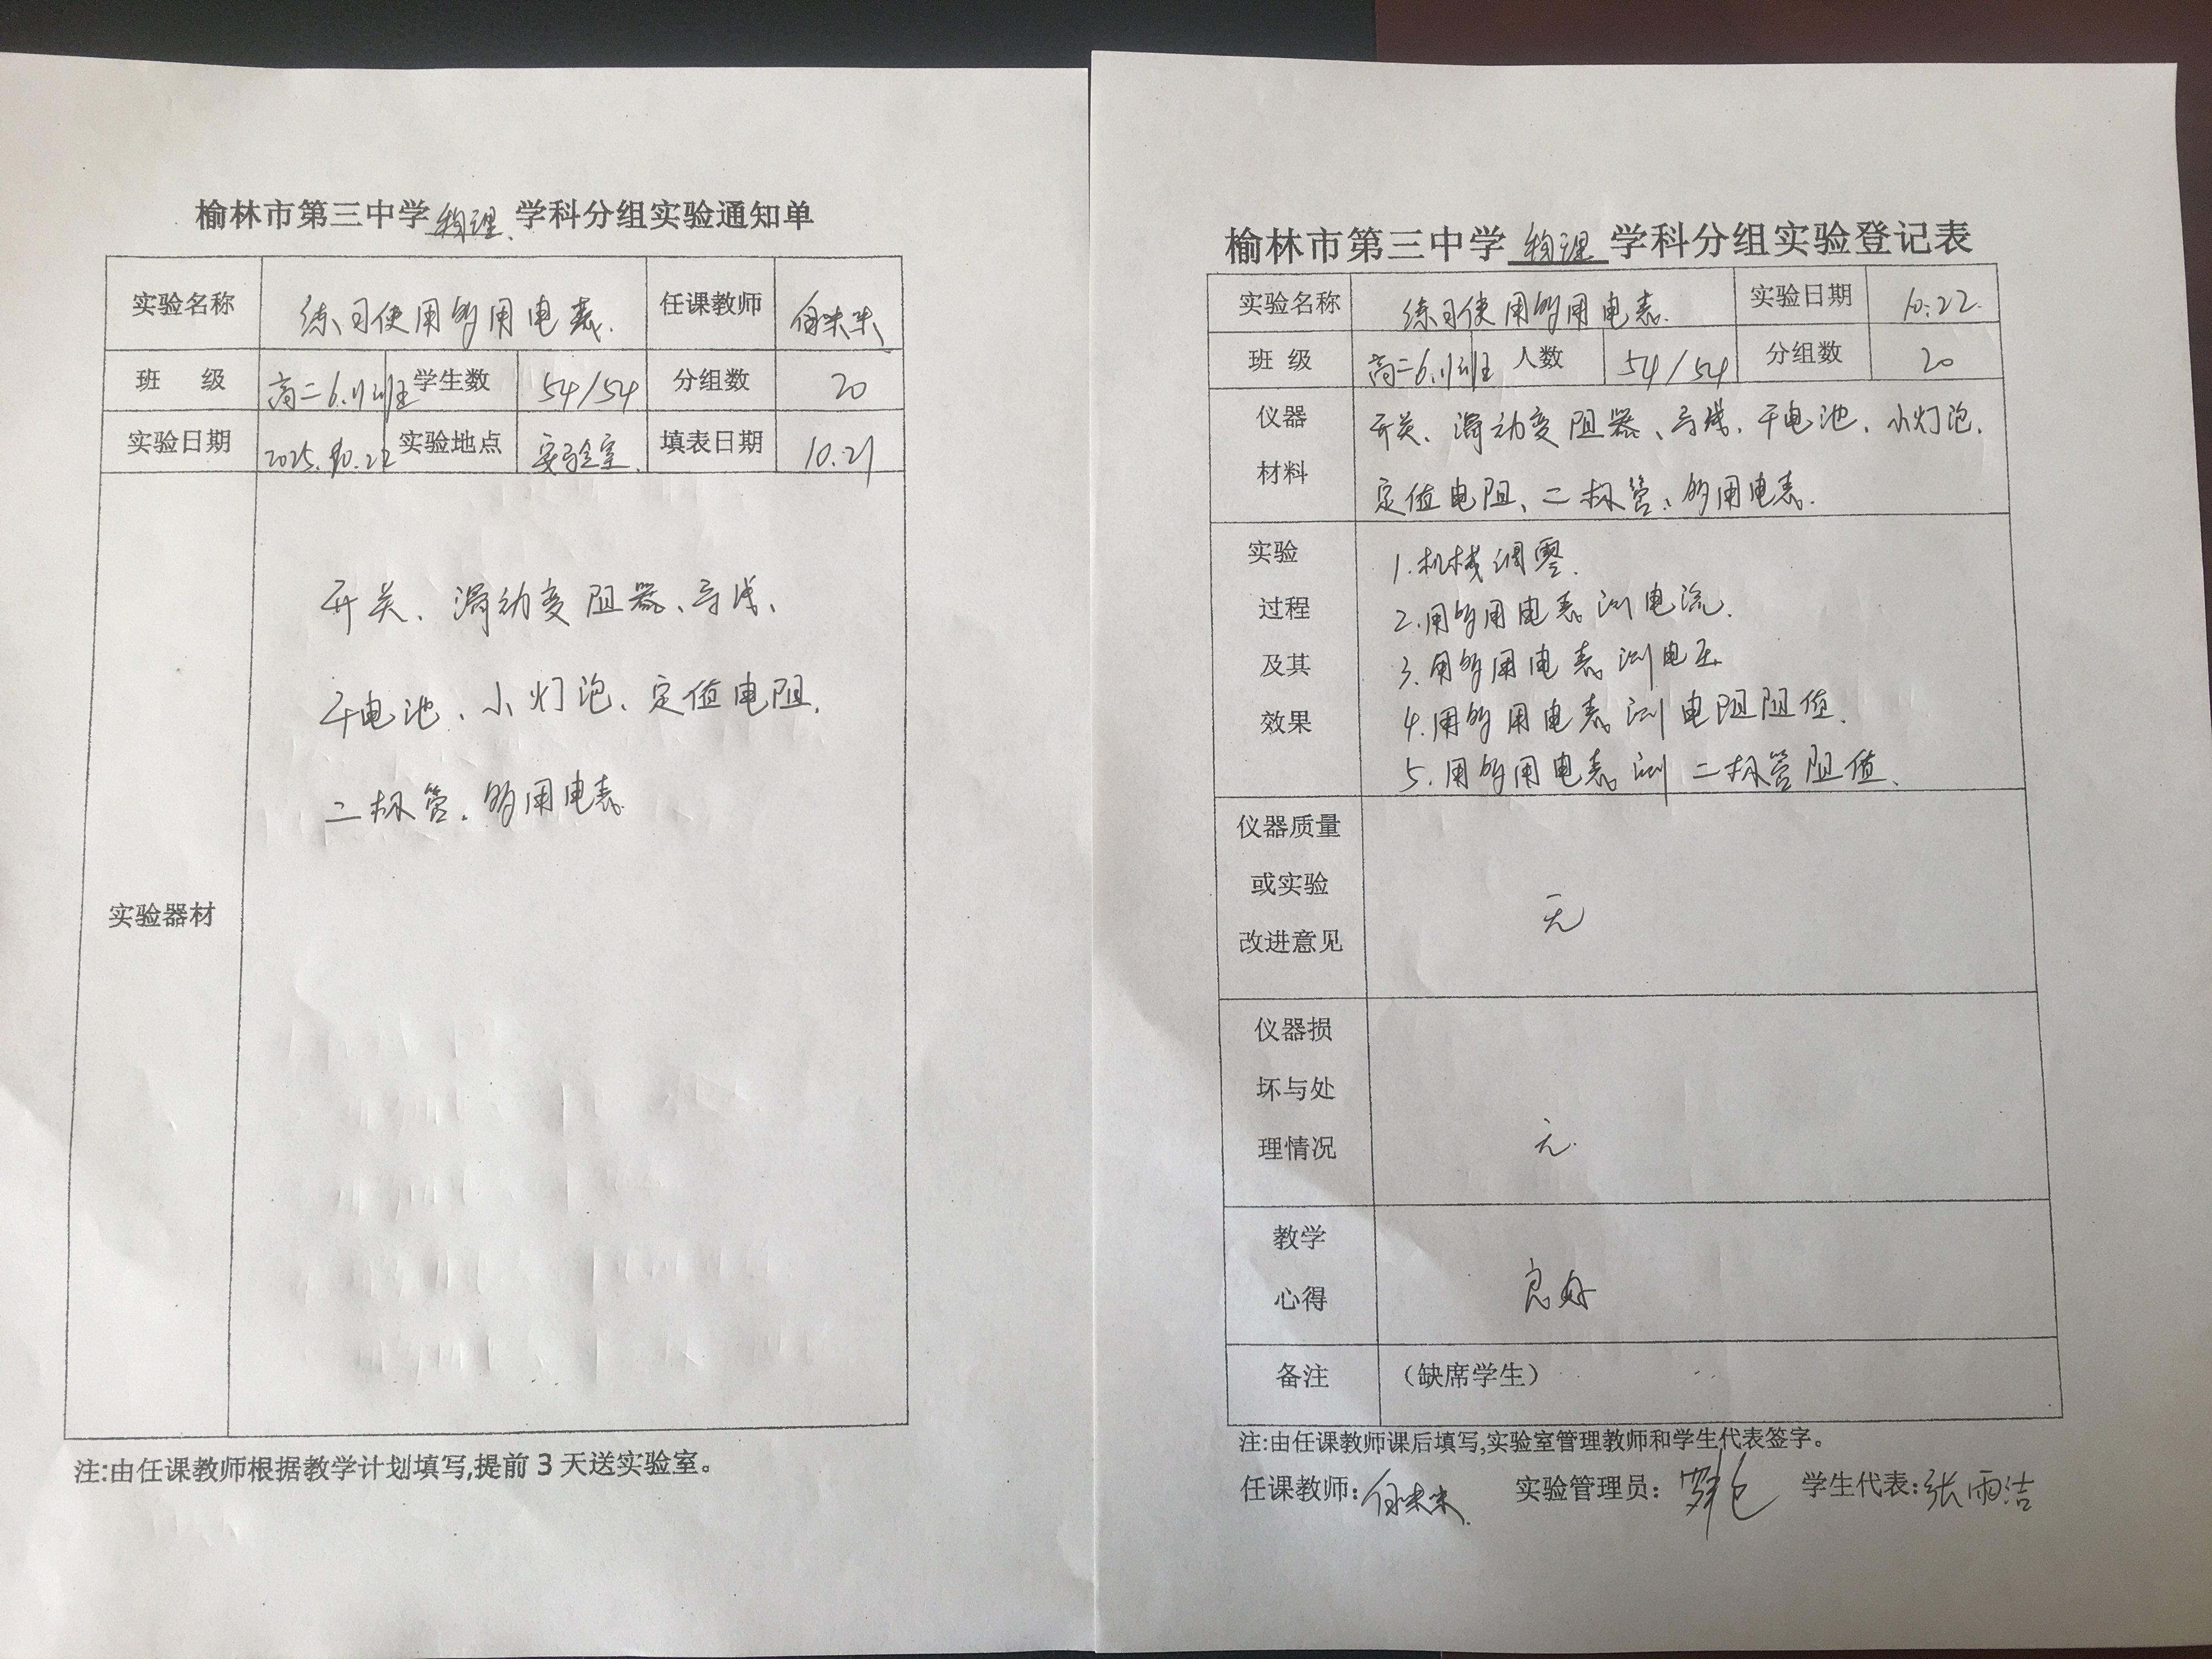 榆林市第三中学 物理 学科分组实验通知单
实验名称 练习使用多用电表. 任课教师
班 级 高二6.11班 学生数 54/54 分组数 20
实验日期 2025.10.22 实验地点 实验室. 填表日期 10.21
实验器材
开关、滑动变阻器、导线、
干电池、小灯泡、定值电阻、
二极管、多用电表.
注:由任课教师根据教学计划填写,提前 3 天送实验室。
榆林市第三中学 物理 学科分组实验登记表
实验名称 练习使用多用电表. 实验日期 10.22.
班 级 高二6.11班 人数 54/54 分组数 20
仪器 开关、滑动变阻器、导线、干电池、小灯泡、
材料 定值电阻、二极管、多用电表.
实验 1.机械调零.
过程 2.用多用电表测电流.
及其 3.用多用电表测电压
效果 4.用多用电表测电阻阻值.
5.用多用电表测二极管阻值.
仪器质量
或实验 无
改进意见
仪器损
坏与处
理情况 无.
教学
心得 良好
备注 （缺席学生）
注:由任课教师课后填写,实验室管理教师和学生代表签字。
任课教师: 实验管理员: 学生代表:张雨洁